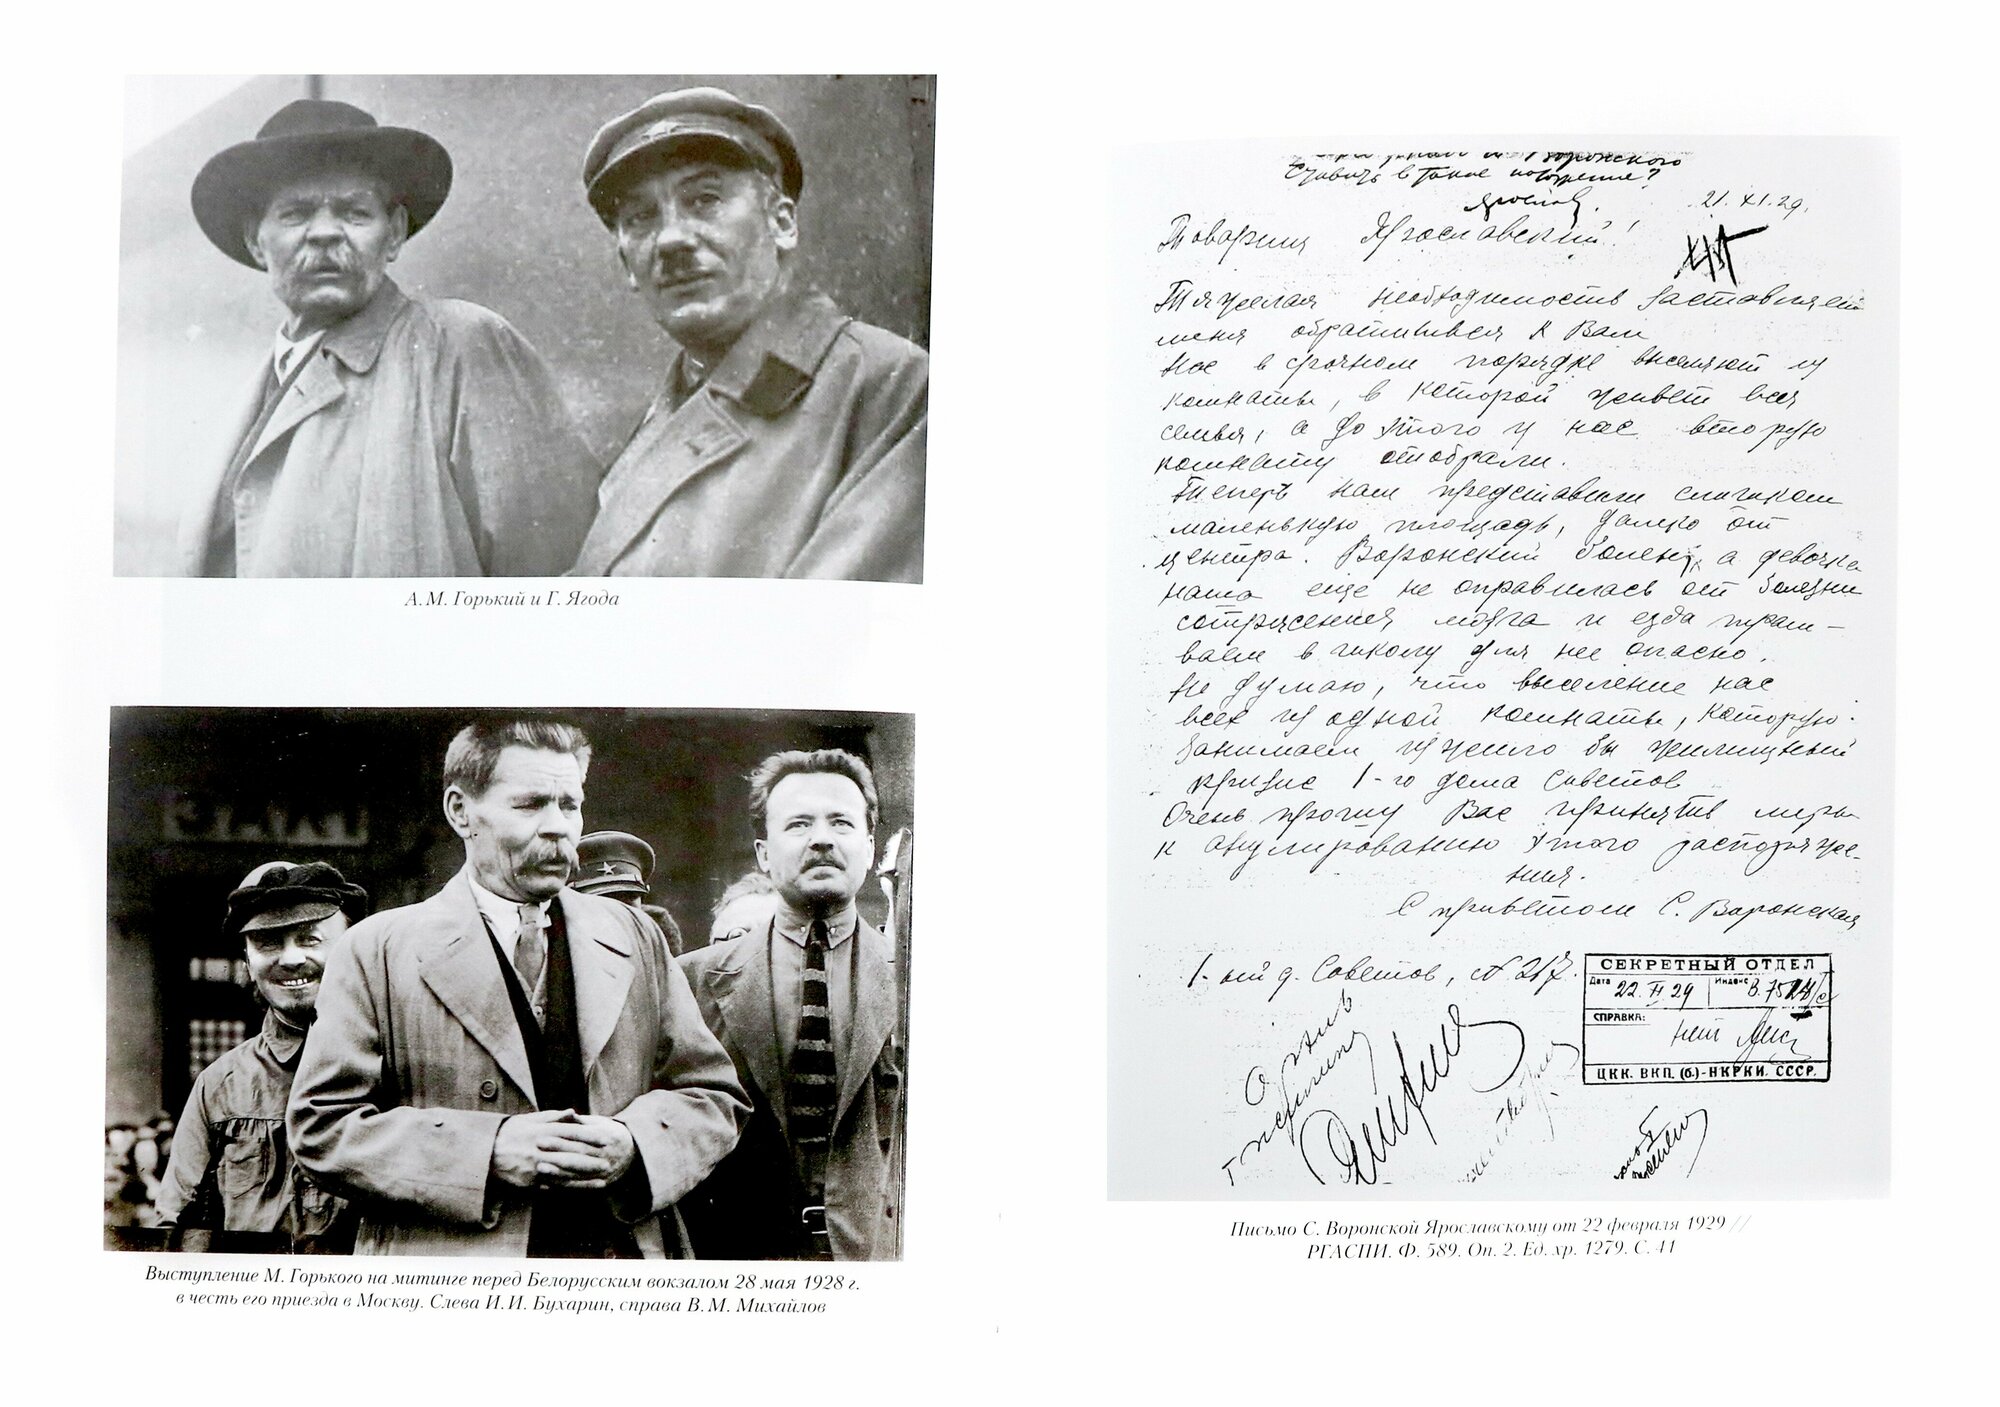 А. М. Горький и Г. Ягода
Выступление М. Горького на митинге перед Белорусским вокзалом 28 мая 1928 г.
в честь его приезда в Москву. Слева И. И. Бухарин, справа В. М. Михайлов
Воронского
ставить в такое положение?
21. XI. 29.
Товарищ Ярославский!
Тяжелая необходимость заставляет
меня обратиться к Вам
Нас в срочном порядке выселяют из
комнаты, в которой живет вся
семья, а до этого у нас вторую
комнату отобрали.
Теперь нам представили слишком
маленькую площадь, далеко от
центра. Воронский болен, а девочка
наша еще не оправилась от болезни
сотрясения мозга и езда трам-
ваем в школу для нее опасно.
Не думаю, что выселение нас
всех из одной комнаты, которую
занимаем изжило бы жилищный
кризис 1-го дома Советов
Очень прошу Вас принять меры
к анулированию этого распоряже-
ния.
С приветом С. Воронская
1-ый д. Советов, N 217.
СЕКРЕТНЫЙ ОТДЕЛ
Дата 22. XI 29 Индекс
СПРАВКА:
нет
ЦКК. ВКП. (б.)-НКРКИ. СССР.
Письмо С. Воронской Ярославскому от 22 февраля 1929 //
РГАСПИ. Ф. 589. Оп. 2. Ед. хр. 1279. С. 41